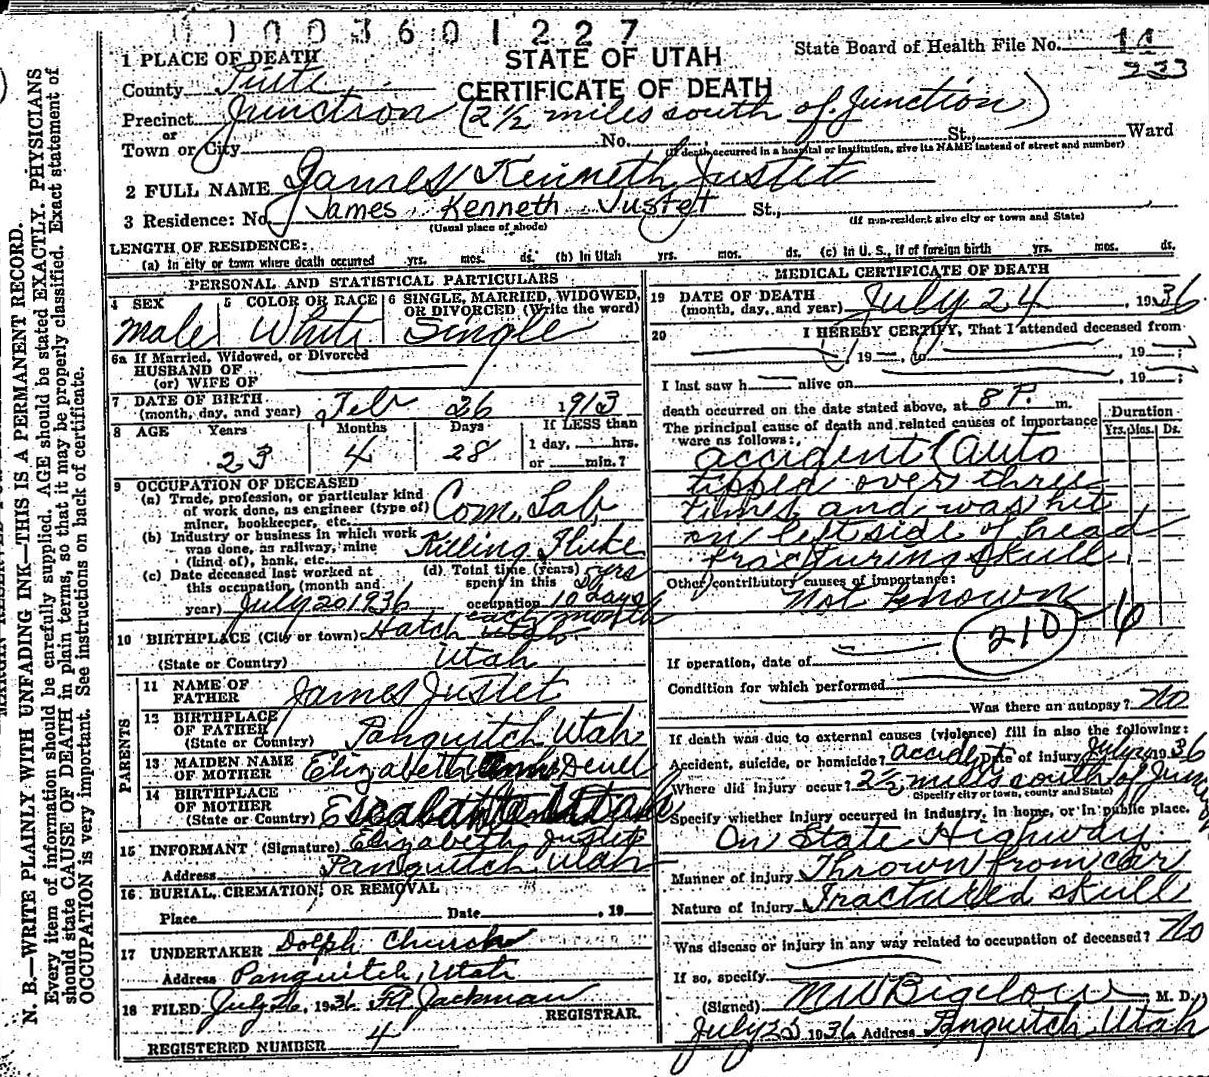 1 1 0 0 3 6 0 1 2 2 7
STATE OF UTAH
CERTIFICATE OF DEATH
State Board of Health File No. 233
1 PLACE OF DEATH
County Piute
Precinct Junction (2 1/2 miles south of Junction)
or
Town or City No. St., Ward
(If death occurred in a hospital or institution, give its NAME instead of street and number)
2 FULL NAME James Kenneth Justet
3 Residence: No. James Kenneth Justet St.,
(Usual place of abode) (If non-resident give city or town and State)
LENGTH OF RESIDENCE:
(a) In city or town where death occurred yrs. mos. ds. (b) In Utah yrs. mos. ds. (c) In U. S., if of foreign birth yrs. mos. ds.
PERSONAL AND STATISTICAL PARTICULARS
4 SEX Male
5 COLOR OR RACE White
6 SINGLE, MARRIED, WIDOWED, OR DIVORCED (Write the word) Single
6a If Married, Widowed, or Divorced
HUSBAND OF
(or) WIFE OF
7 DATE OF BIRTH
(month, day, and year) Feb 26 1913
8 AGE Years Months Days If LESS than
23 4 28 1 day, hrs.
or min.?
9 OCCUPATION OF DECEASED
(a) Trade, profession, or particular kind
of work done, as engineer (type of)
miner, bookkeeper, etc. Com. Lab.
(b) Industry or business in which work
was done, as railway, mine
(kind of), bank, etc. Killing Fluke
(c) Date deceased last worked at
this occupation (month and
year) July 20 1936
(d) Total time (years)
spent in this
occupation yrs 10 days each month
10 BIRTHPLACE (City or town) Hatch Utah
(State or Country) Utah
PARENTS
11 NAME OF
FATHER James Justet
12 BIRTHPLACE
OF FATHER
(State or Country) Panguitch Utah
13 MAIDEN NAME
OF MOTHER Elizabeth Ann Deuel
14 BIRTHPLACE
OF MOTHER
(State or Country) Escalante Utah
15 INFORMANT (Signature) Elizabeth Justet
Address Panguitch Utah
16 BURIAL, CREMATION, OR REMOVAL
Place Date , 19
17 UNDERTAKER Dolph Church
Address Panguitch, Utah
18 FILED July 26, 1936 Jackman
REGISTRAR.
REGISTERED NUMBER 4
MEDICAL CERTIFICATE OF DEATH
19 DATE OF DEATH
(month, day, and year) July 24, 1936
20 I HEREBY CERTIFY, That I attended deceased from
, 19 , to , 19 ;
I last saw h alive on , 19 ;
death occurred on the date stated above, at 8 P. m.
The principal cause of death and related causes of importance
were as follows:
Duration
Yrs. Mos. Ds.
accident (auto
tipped over three
times and was hit
on left side of head
fracturing skull
Other contributory causes of importance:
Not known
210
If operation, date of
Condition for which performed
Was there an autopsy? No
If death was due to external causes (violence) fill in also the following:
Accident, suicide, or homicide? accident Date of injury July 24 1936
Where did injury occur? 2 1/2 miles south of Junction
(Specify city or town, county and State)
Specify whether injury occurred in industry, in home, or in public place.
On State Highway
Manner of injury Thrown from car
Nature of injury Fractured skull
Was disease or injury in any way related to occupation of deceased? No
If so, specify
(Signed) M W Bigelow M. D.
July 25 1936 Address Panguitch, Utah
N. B.—WRITE PLAINLY WITH UNFADING INK—THIS IS A PERMANENT RECORD.
Every item of information should be carefully supplied. AGE should be stated EXACTLY. PHYSICIANS
should state CAUSE OF DEATH in plain terms, so that it may be properly classified. Exact statement of
OCCUPATION is very important. See instructions on back of certificate.